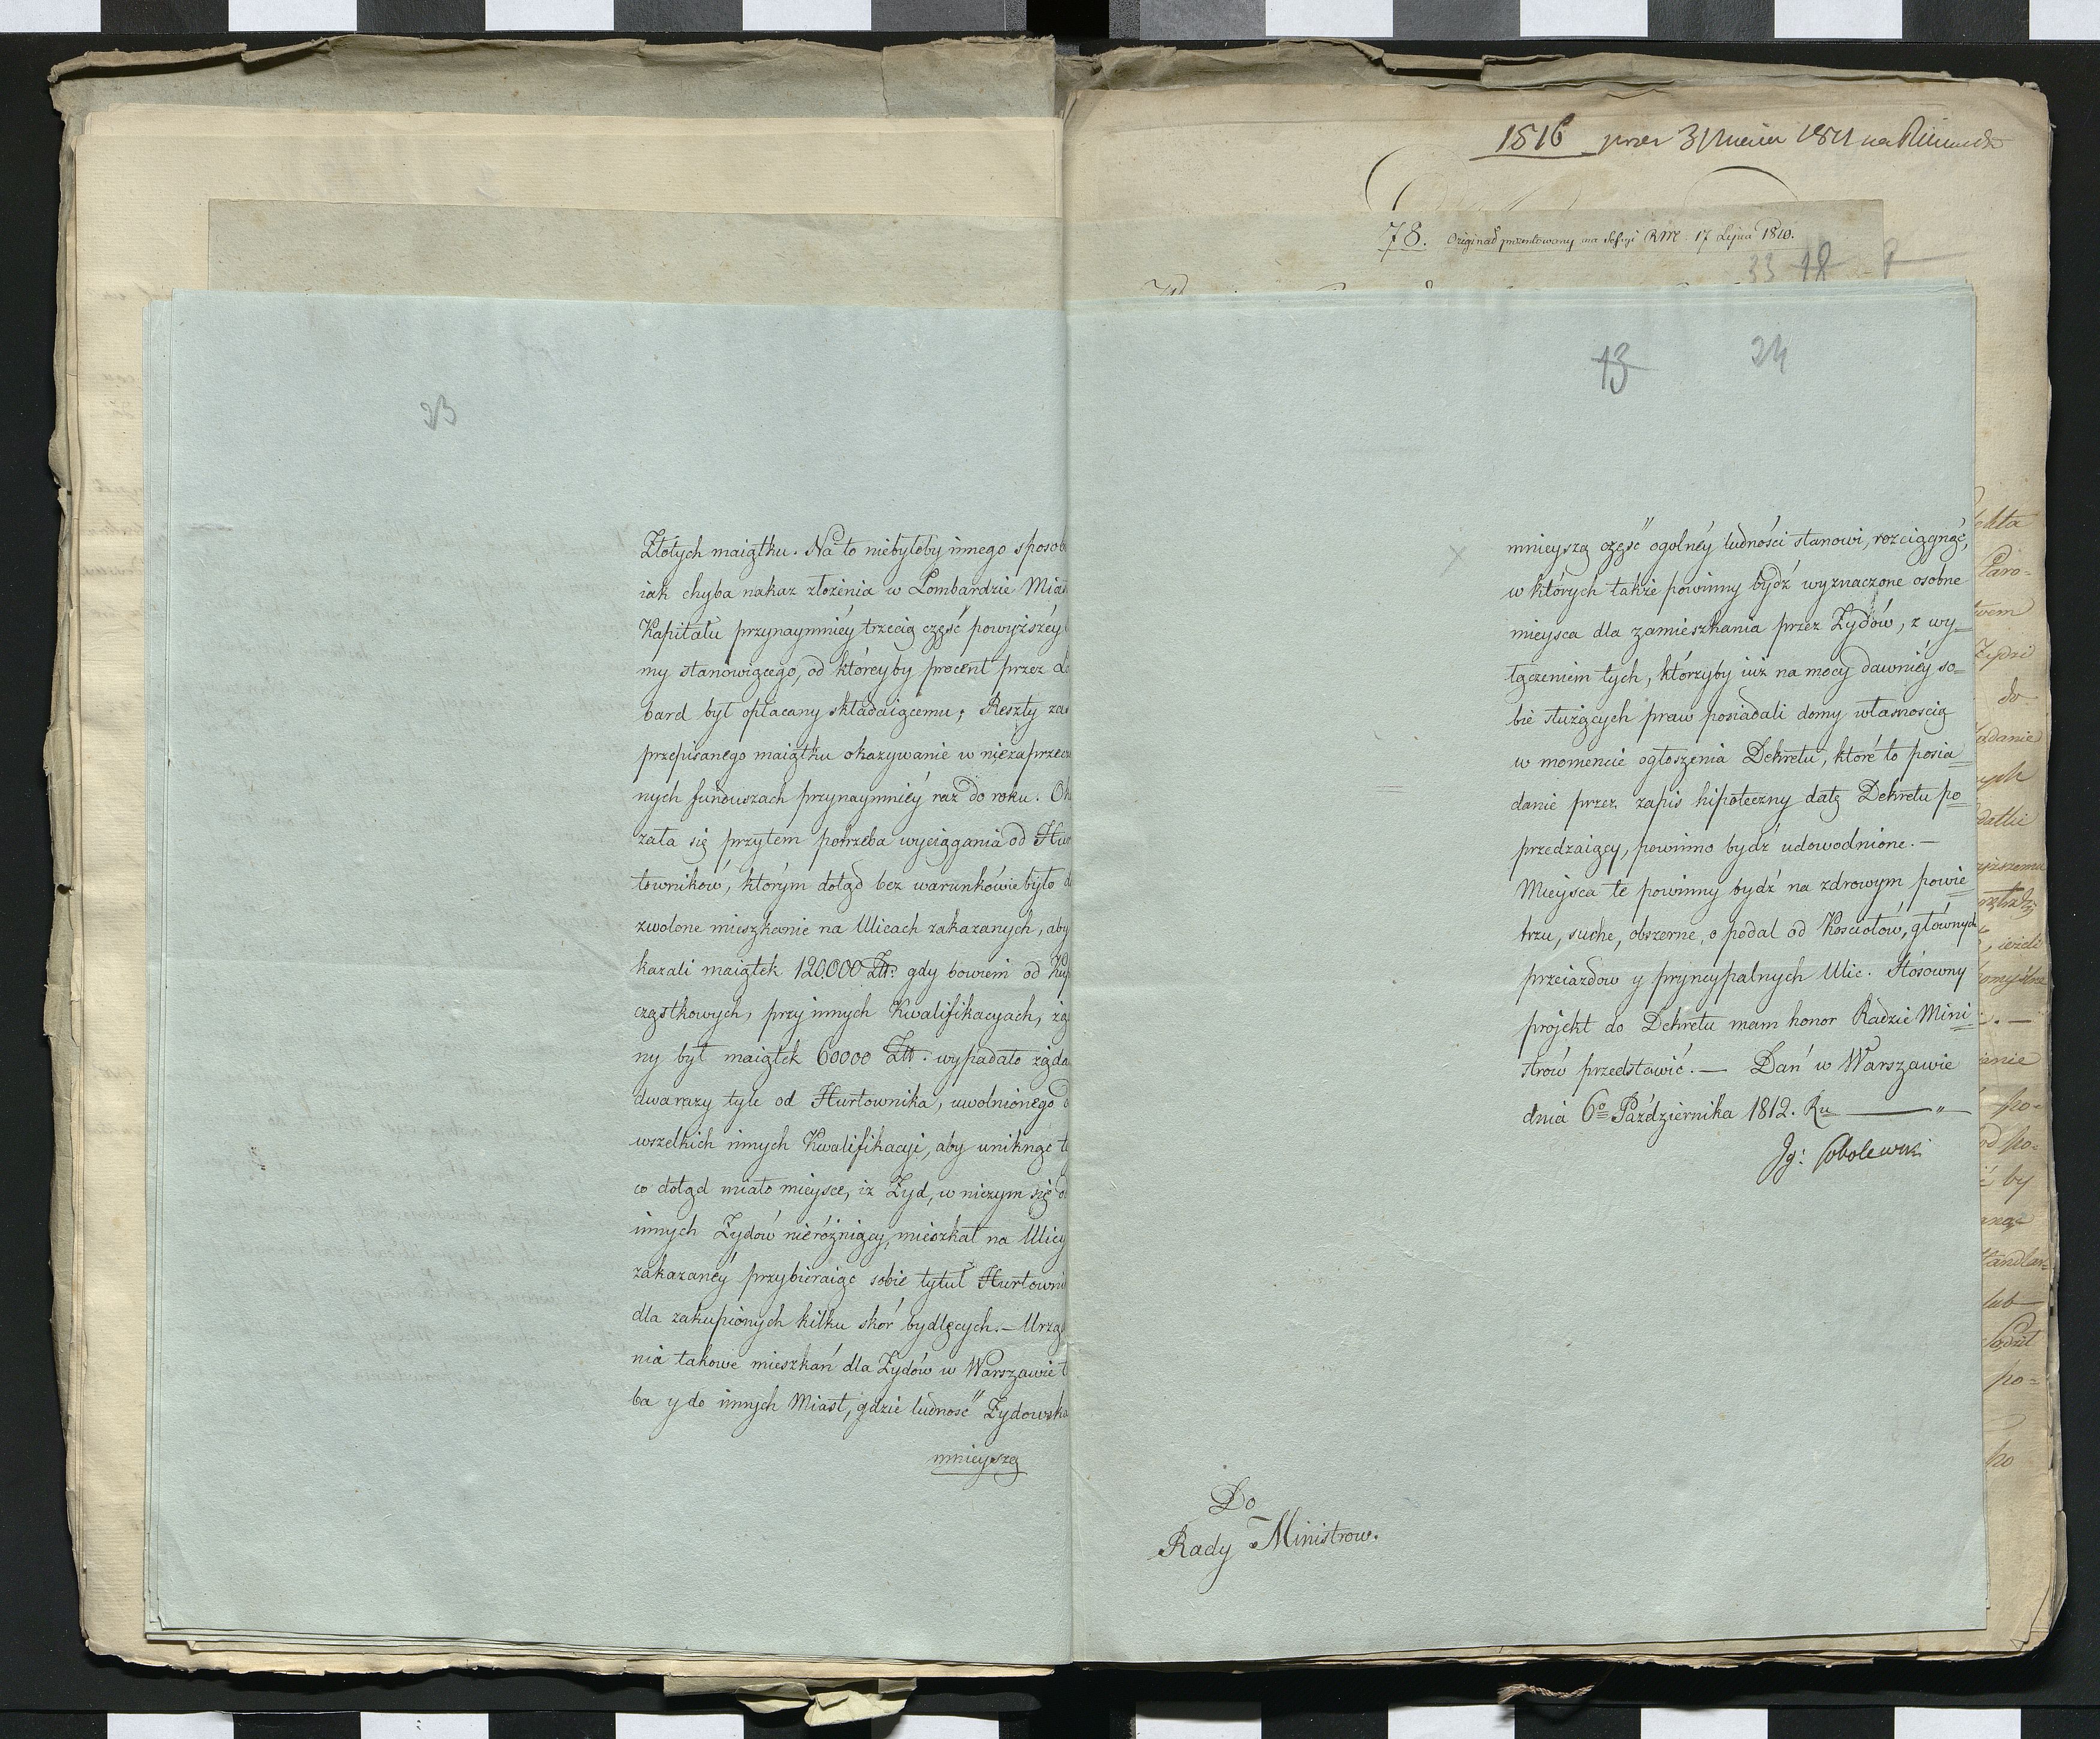 23
Złotych maiątku. Na to niebyłoby innego sposob
iak chyba nakaz złożenia w Lombardzie Mia
Kapitału przynaymniéy trzecią część powyższéy
my stanowiącego, od któréyby procent przez L
bard był opłacany składaiącemu; Reszty za
przepisanego maiątku okazywanie w niezaprzec
nych funduszach przynaymniéy raz do roku. Ok
zała się przytem potrzeba wyciągania od Hur
towników, którym dotąd bez warunków było d
zwolone mieszkanie na Ulicach zakazanych, aby
kazali maiątek 120.000 Złł. gdy bowiem od Kup
cząstkowych, przy innych Kwalifikacyach, żą
ny był maiątek 60000 Złł. wypadało żąda
dwa razy tyle od Hurtownika, uwolnionego o
wszelkich innych Kwalifikacyi, aby uniknąć t
co dotąd miało mieysce, iż Żyd, w niczym się od
innych Żydów nieróżniący, mieszkał na Ulicy
zakazanéy przybieraiąc sobie tytuł Hurtowni
dla zakupionych kilku skór bydlęcych. — Urzą
nia takowe mieszkań dla Żydów w Warszawie t
ba y do innych Miast, gdzie ludność Żydowska
mnieyszą
1816 przez
78. Originał prezentowany na Sessyi RM. 17 Lipca 1810.
33 18
13 24
mnieyszą część ogolnéy ludności stanowi, rozciągnąć,
w których także powinny bydź wyznaczone osobne
mieysca dla zamieszkania przez Żydów, z wy-
łączeniem tych, którzyby iuż na mocy dawniéy so-
bie służących praw posiadali domy własnością
w momencie ogłoszenia Dekretu, które to posia-
danie przez zapis hipoteczny datę Dekretu po-
przedzaiący, powinno bydź udowodnione. —
Mieysca te powinny bydź na zdrowym powie-
trzu, suche, obszerne, o podal od Kosciołów, głównych
przeiazdow y pryncypalnych Ulic. Stósowny
projekt do Dekretu mam honor Radzie Mini-
strów przedstawić. — Dań w Warszawie
dnia 6º Października 1812. Ru
Ig: Sobolewski
Do
Rady Ministrow.